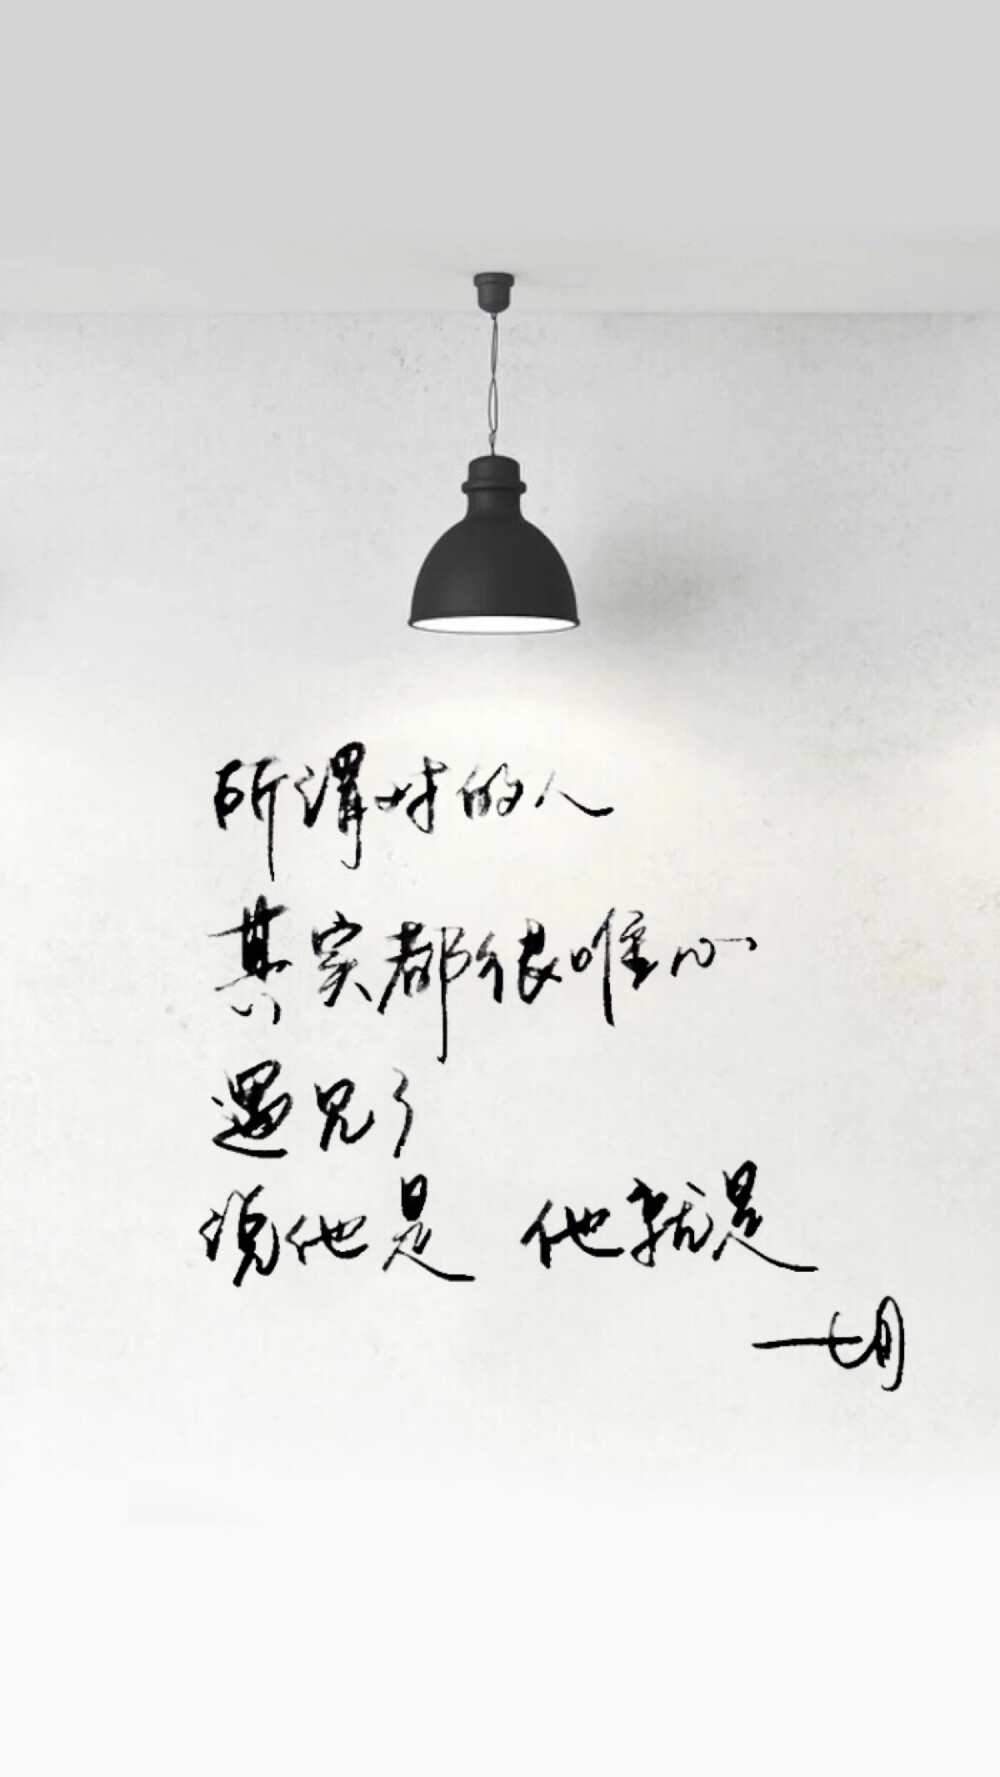 所谓对的人
其实都很唯心
遇见了
说他是 他就是
——七月